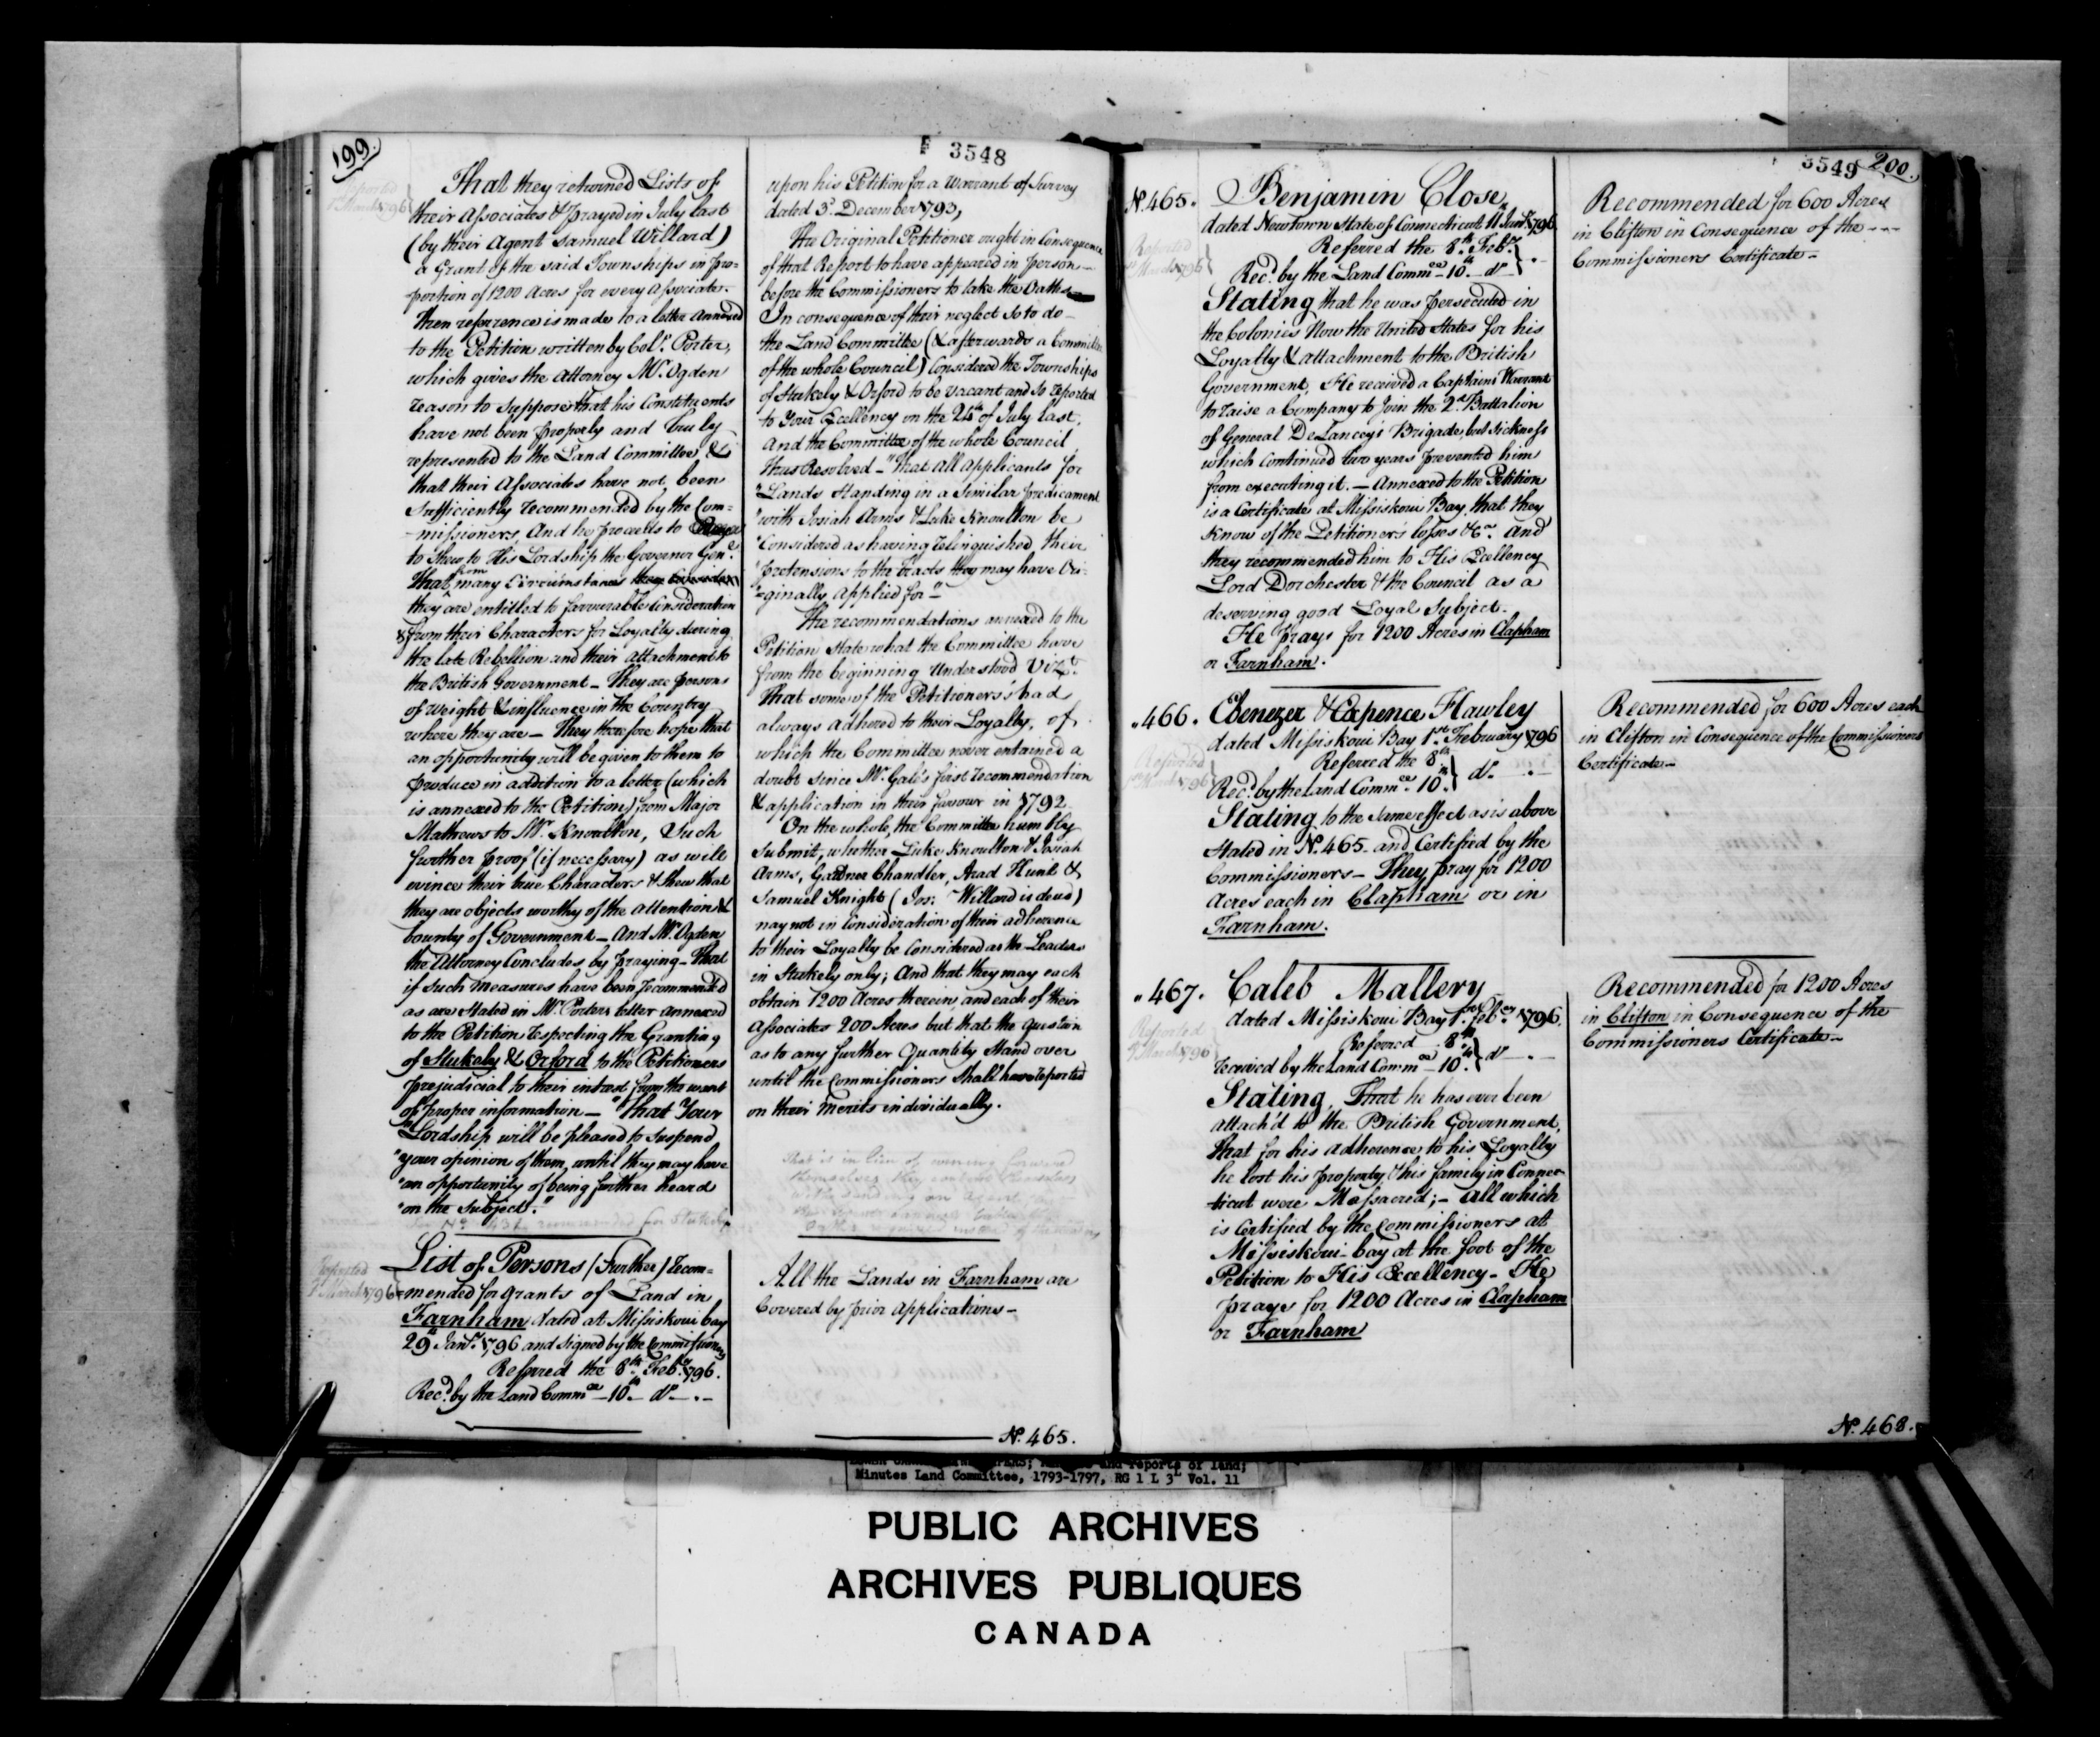 199.
3548
Reported
1 March 1796
That they returned Lists of
their Associates & prayed in July last
(by their Agent Samuel Willard)
a Grant of the said Townships in pro=
portion of 1200 Acres for every Associate.
Then referrence is made to a letter annexed
to the Petition written by Colo. Porter,
which gives the Attorney Mr. Ogden
reason to suppose that his Constituents
have not been properly and truly
represented to the Land Committee, &
that their Associates have not been
sufficiently recommended by the Com=
missioners, And he proceeds to
to shew to His Lordship the Governor Genl.
That from many Circumstances
they are entitled to favourable Consideration
& from their Characters for Loyalty during
the late Rebellion and their attachment to
the British Government – They are persons
of weight & influence in the Country
where they are – They therefore hope that
an opportunity will be given to them to
produce in adition to a letter (which
is annexed to the Petition) from Major
Mathews to Mr. Knowlton, Such
further proof (if necessary) as will
evince their true Characters & shew that
they are objects worthy of the attention &
bounty of Government – And Mr. Ogden
the Attorney Concludes by praying – That
if such measures have been recommended
as are stated in Mr. Porters letter annexed
to the Petition respecting the Granting
of Stukely & Orford to the Petitioners
prejudicial to their intrest from the want
of proper information – "That Your
"Lordship will be pleased to suspend
"your opinion of them, until they may have
"an opportunity of being further heard
"on the Subject."
Reported
1 March 1796
List of Persons (Further) recom=
mended for grants of Land in
Farnham dated at Missiskoui bay
29th Jany. 1796 and signed by the Commissioners
Referred the 8th Feby. 1796.
Recd. by the Land Commee – 10th – do – . –
upon his Petition for a Warrant of Survey
dated 3d. December 1793,
The Original Petitioner ought in Consequence
of that Report to have appeared in person –
before the Commissioners to take the Oaths
In consequence of their neglect so to do –
the Land Committee (& afterwards a Committee
of the whole Council) Considered the Townships
of Stukely & Orford to be vacant and so reported
to Your Excellency on the 24th of July last,
And the Committee of the whole Council
thus Resolved – "That all applicants for
"Lands standing in a similar predicament
"with Josiah Arms & Luke Knoulton be
"Considered as having relinquished their
"pretensions to the tracts they may have Ori-
"=ginally applied for –"
The recommendations annexed to the
Petition state what the Committee have
from the beginning Understood Vizt.
That some of the Petitioners's had
always adhered to their Loyalty, of
which the Committee never entained a
doubt since Mr. Gale's first recommendation
& application in their favour in 1792
On the whole, the Committee humbly
submit, whether Luke Knoulton & Josiah
Arms, Gardner Chandler, Arad Hunt &
Samuel Knight (Jos: Willard is dead)
may not in Consideration of their adherence
to their Loyalty be Considered as the Leaders
in Stukely only; And that they may each
obtain 1200 Acres therein and each of their
Associates 200 Acres but that the question
as to any further Quantity stand over
until the Commissioners shall have reported
on their merits individually.
All the Lands in Farnham are
Covered by prior applications –
No. 465.
3549
200.
No. 465.
Reported
1 March 1796
Benjamin Close,
dated Newtown State of Connecticut 11 Jany. 1796
Referred the 8th Feby.
Recd. by the Land Commee – 10th do
Stating that he was persecuted in
the Colonies Now the United States for his
Loyalty & attachment to the British
Government, He received a Captains Warrant
to raise a Company to join the 2d Battalion
of General DeLancey's Brigade, but sickness
which continued two years prevented him
from executing it. – Annexed to the Petition
is a Certificate at Missiskoui Bay, that they
know of the Petitioner's losses &ca. And
they recommended him to His Excellency
Lord Dorchester & the Council as a
deserving good Loyal Subject.
He prays for 1200 Acres in Clapham
or Farnham.
Recommended for 600 Acres
in Clifton in Consequence of the ---
Commissioners Certificate –
„ 466.
Reported
1 March 1796
Ebenezer & Expence Hawley
dated Missiskoui Bay 1st. February 1796
Referred the 8th
Recd. by the Land Commee. 10th. do – . –
Stating to the same effect as is above
stated in No. 465 – and Certified by the
Commissioners – They pray for 1200
Acres each in Clapham or in
Farnham.
Recommended for 600 Acres each
in Clifton in Consequence of the Commissioners
Certificate –
„ 467.
Reported
1 March 1796
Caleb Mallery
dated Missiskoui Bay 1st. Feby. 1796.
Referred 8th
received by the Land Commee – 10th. do – . –
Stating, That he has ever been
attach'd to the British Government,
that for his adherence to his Loyalty
he lost his property & his family in Connec-
ticut were Massacred; – all which
is Certified by the Commissioners at
Missiskoui-bay at the foot of the
Petition to His Excellency – He
prays for 1200 Acres in Clapham
or Farnham
Recommended for 1200 Acres
in Clifton in Consequence of the
Commissioners Certificate –
No. 468.
and reports of land;
Minutes Land Committee, 1793-1797, RG 1 L 3L Vol. 11
PUBLIC ARCHIVES
ARCHIVES PUBLIQUES
CANADA